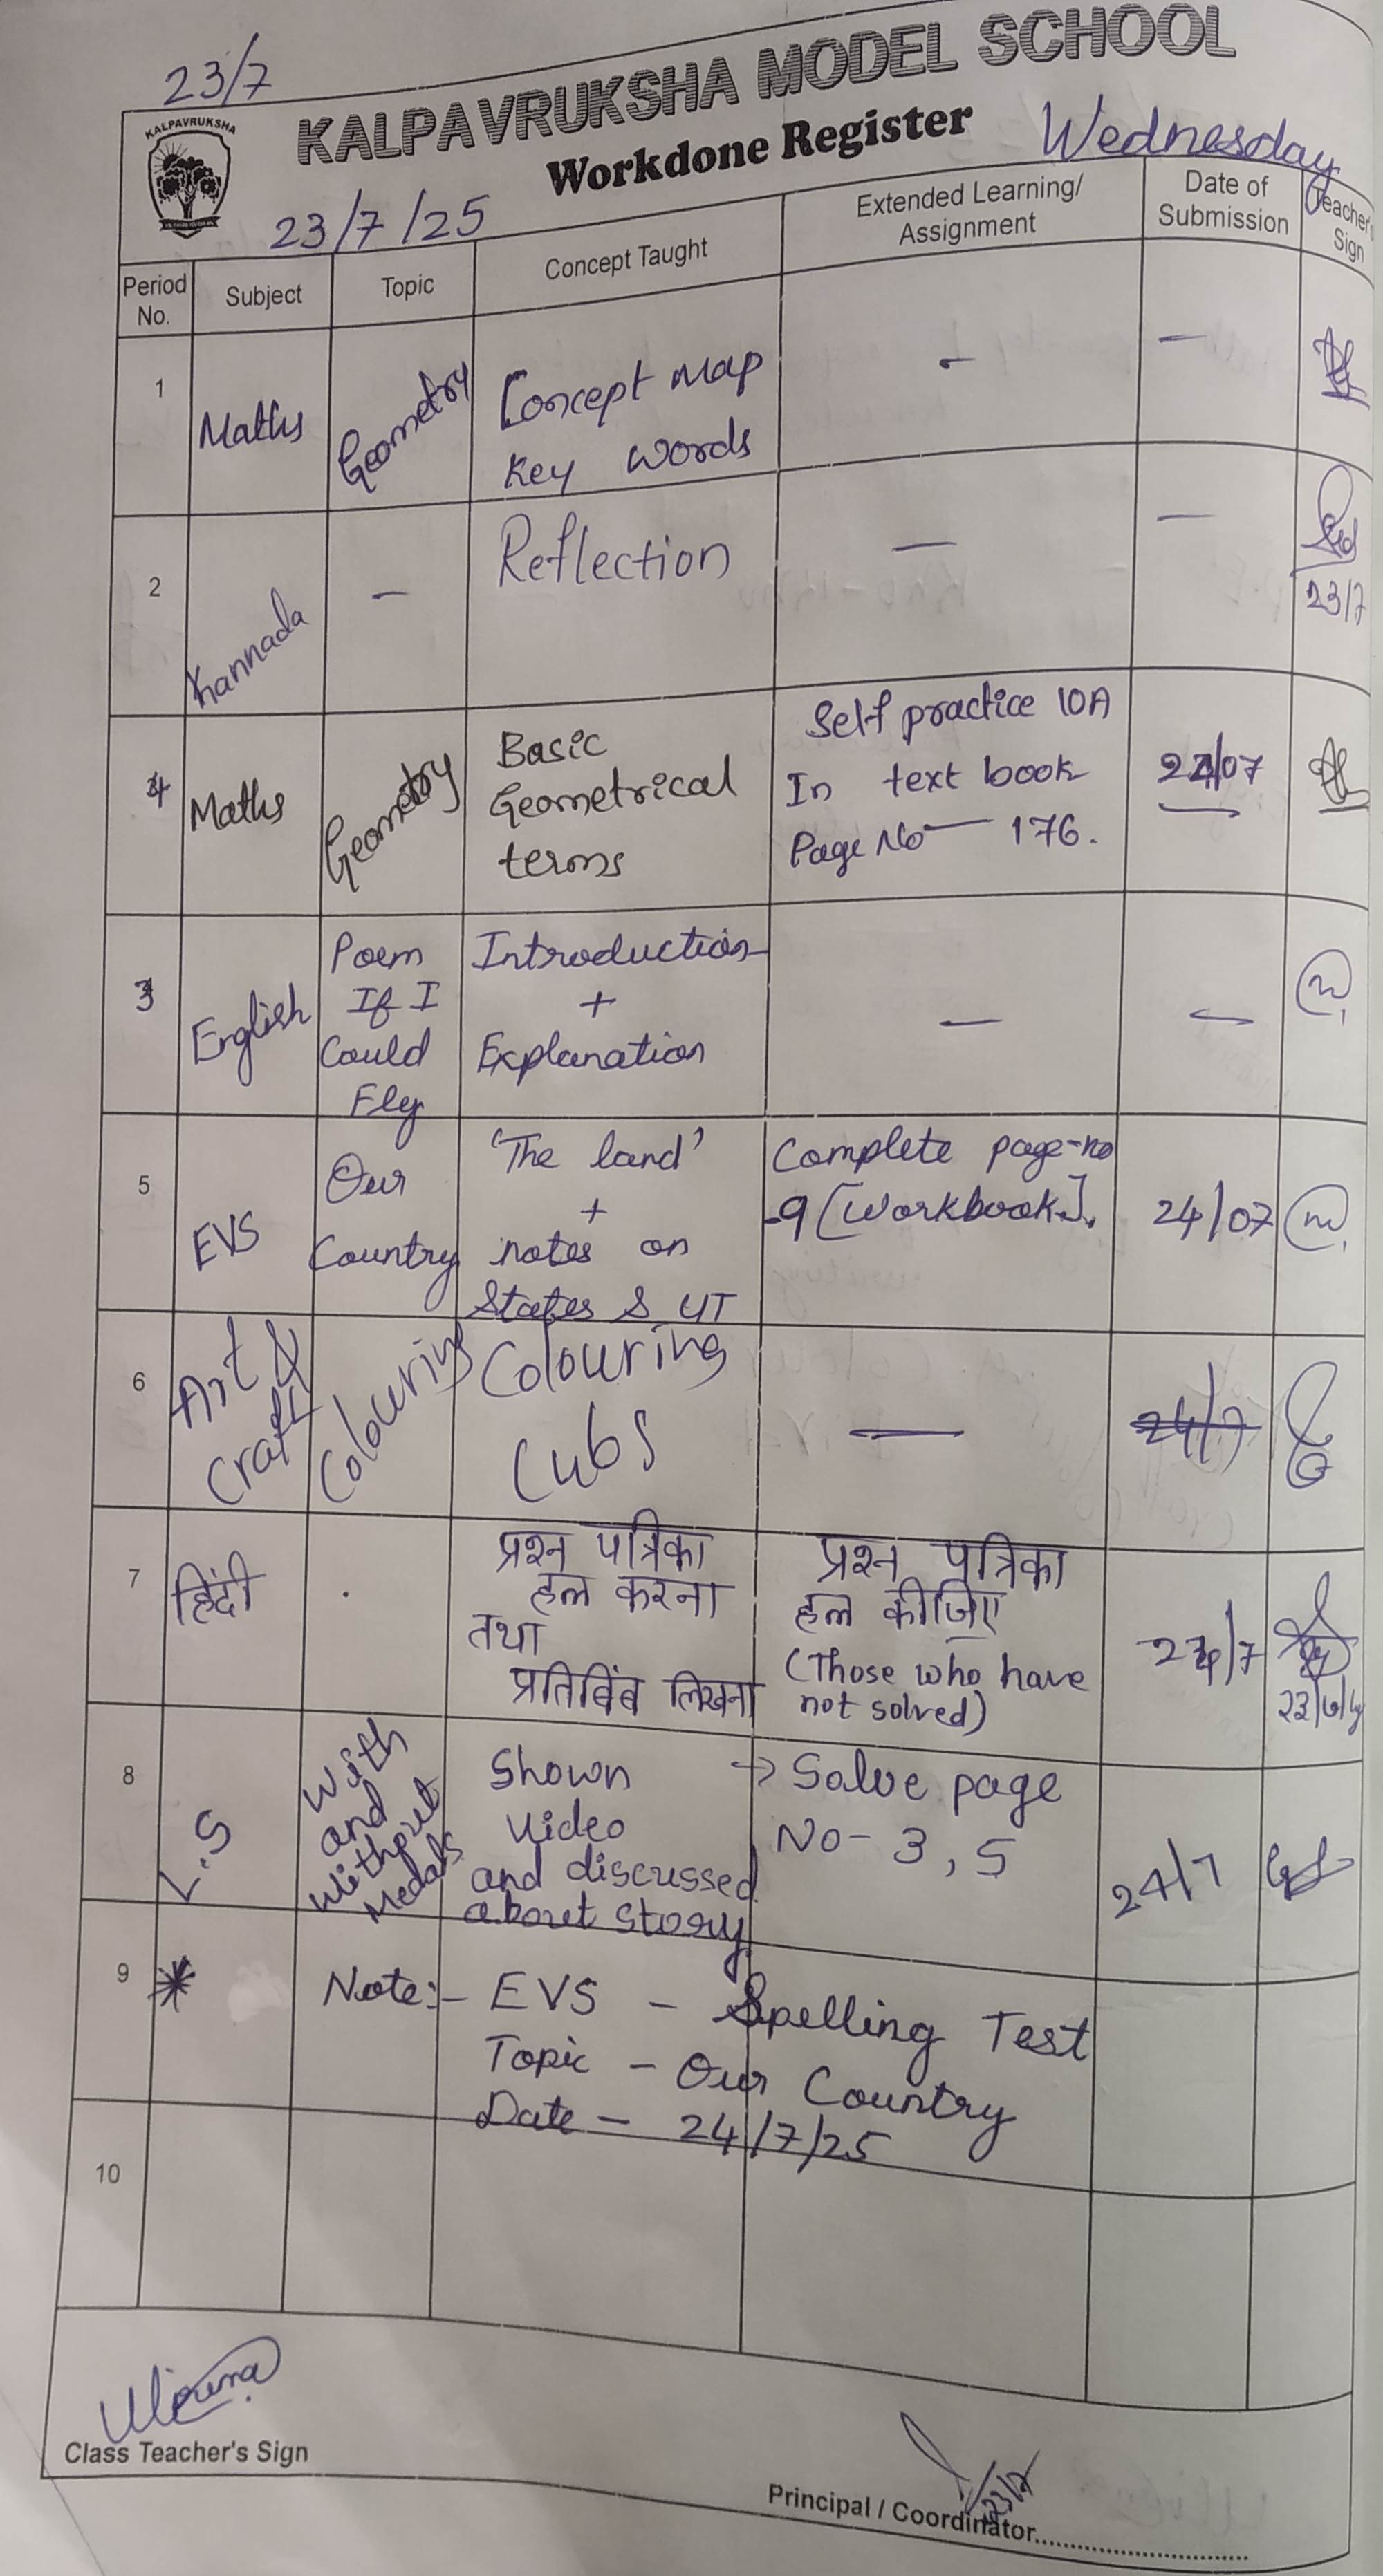 23/7
KALPAVRUKSHA
KALPAVRUKSHA MODEL SCHOOL
Workdone Register
Wednesday
23/7/25
Period No. Subject Topic Concept Taught Extended Learning/ Assignment Date of Submission Teacher's Sign
1 Maths Geometry Concept Map — —
Key words
2 Kannada — Reflection — —
23/7
4 Maths Geometry Basic Self practice 10A
Geometrical In text book 24/07
terms Page No — 176.
3 English Poem Introduction
If I +
Could Explanation — —
Fly
5 EVS Our 'The land' Complete page-no
Country + -9 [Workbook]. 24/07
notes on
States & UT
6 Art & Craft Colouring Colouring — 24/7
Cubs
7 हिंदी . प्रश्न पत्रिका प्रश्न पत्रिका
हल करना हल कीजिए
तथा (Those who have 24/7
प्रतिबिंब लिखना not solved)
8 L.S With and without Medals Shown → Solve page
Video No - 3, 5 24/7
and discussed
about story
9 * Note:- EVS - Spelling Test
Topic - Our Country
Date - 24/7/25
10
Class Teacher's Sign
23/7
Principal / Coordinator